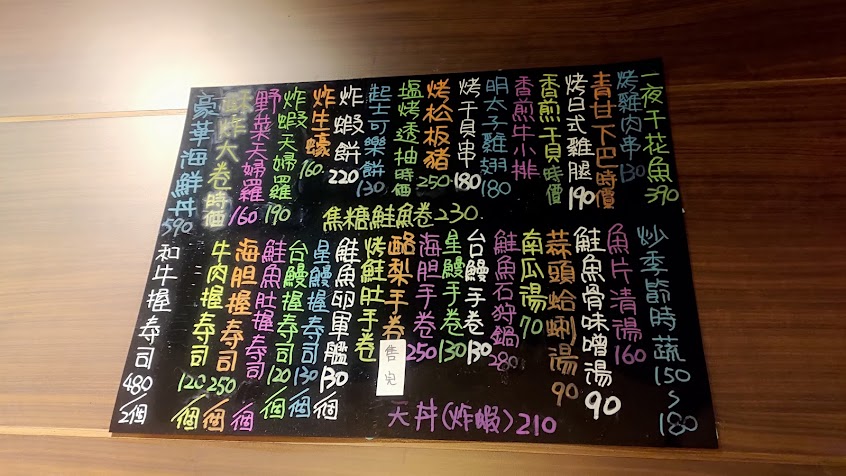 一夜干花魚390
烤雞肉串130
青甘下巴時價
烤日式雞腿190
香煎干貝時價
香煎牛小排
明太子雞翅180
烤干貝串180
烤松板豬250
塩烤透抽時価
起士可樂餅130
炸蝦餅220
炸生蠔160
炸蝦天婦羅190
野菜天婦羅160
酥炸大卷時価
豪華海鮮丼590
焦糖鮭魚卷230
炒季節時蔬150~180
魚片清湯160
鮭魚骨味噌湯90
蒜頭蛤蜊湯90
南瓜湯70
鮭魚石狩鍋280
台鰻手卷130
星鰻手卷130
海胆手卷250
酪梨手卷
售完
烤鮭肚手卷
鮭魚卵軍艦130/個
星鰻握寿司130/個
台鰻握寿司120/個
鮭魚肚握寿司/個
海胆握寿司250/個
牛肉握寿司120/個
和牛握寿司480/2個
天丼(炸蝦)210